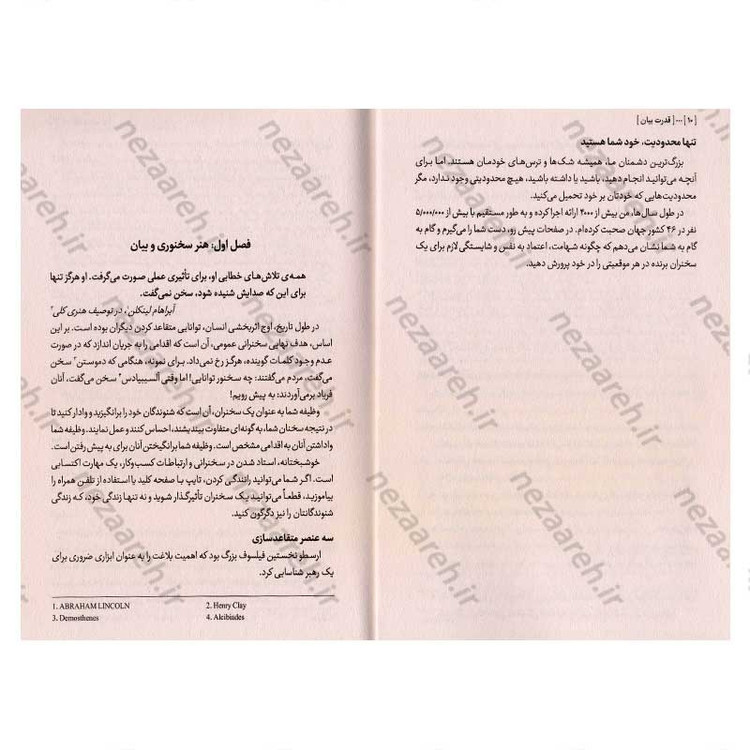 [ ۱۰ | ... [ قدرت بیان ]
تنها محدودیت، خود شما هستید
بزرگ‌ترین دشمنان ما، همیشه شک‌ها و ترس‌های خودمان هستند. اما برای
آنچه می‌توانید انجام دهید، باشید یا داشته باشید، هیچ محدودیتی وجود ندارد، مگر
محدودیت‌هایی که خودتان بر خود تحمیل می‌کنید.
در طول سال‌ها، من بیش از ۲۰۰۰ ارائه اجرا کرده و به طور مستقیم با بیش از ۵/۰۰۰/۰۰۰
نفر در ۴۶ کشور جهان صحبت کرده‌ام. در صفحات پیش رو، دست شما را می‌گیرم و گام به
گام به شما نشان می‌دهم که چگونه شهامت، اعتماد به نفس و شایستگی لازم برای یک
سخنران برنده در هر موقعیتی را در خود پرورش دهید.
فصل اول: هنر سخنوری و بیان
همه‌ی تلاش‌های خطابی او، برای تأثیری عملی صورت می‌گرفت. او هرگز تنها
برای این که صدایش شنیده شود، سخن نمی‌گفت.
آبراهام لینکلن۱، در توصیف هنری کلی۲
در طول تاریخ، اوج اثربخشی انسان، توانایی متقاعد کردن دیگران بوده است. بر این
اساس، هدف نهایی سخنرانی عمومی، آن است که اقدامی را به جریان اندازد که در صورت
عدم وجود کلمات گوینده، هرگز رخ نمی‌داد. برای نمونه، هنگامی که دموستن۳ سخن
می‌گفت، مردم می‌گفتند: چه سخنور توانایی! اما وقتی آلسیبیادس۴ سخن می‌گفت، آنان
فریاد برمی‌آوردند: به پیش رویم!
وظیفه شما به عنوان یک سخنران، آن است که شنوندگان خود را برانگیزید و وادار کنید تا
در نتیجه سخنان شما، به گونه‌ای متفاوت بیندیشند، احساس کنند و عمل نمایند. وظیفه شما
واداشتن آنان به اقدامی مشخص است. وظیفه شما برانگیختن آنان برای به پیش رفتن است.
خوشبختانه، استاد شدن در سخنرانی و ارتباطات کسب‌وکار، یک مهارت اکتسابی
است. اگر شما می‌توانید رانندگی کردن، تایپ با صفحه کلید یا استفاده از تلفن همراه را
بیاموزید، قطعاً می‌توانید یک سخنران تأثیرگذار شوید و نه تنها زندگی خود، که زندگی
شنوندگانتان را نیز دگرگون کنید.
سه عنصر متقاعدسازی
ارسطو نخستین فیلسوف بزرگ بود که اهمیت بلاغت را به عنوان ابزاری ضروری برای
یک رهبر شناسایی کرد.
1. ABRAHAM LINCOLN 2. Henry Clay
3. Demosthenes 4. Alcibiades
nezaareh.ir
nezaareh.ir
nezaareh.ir
nezaareh.ir
nezaareh.ir
nezaareh.ir
nezaareh.ir
nezaareh.ir